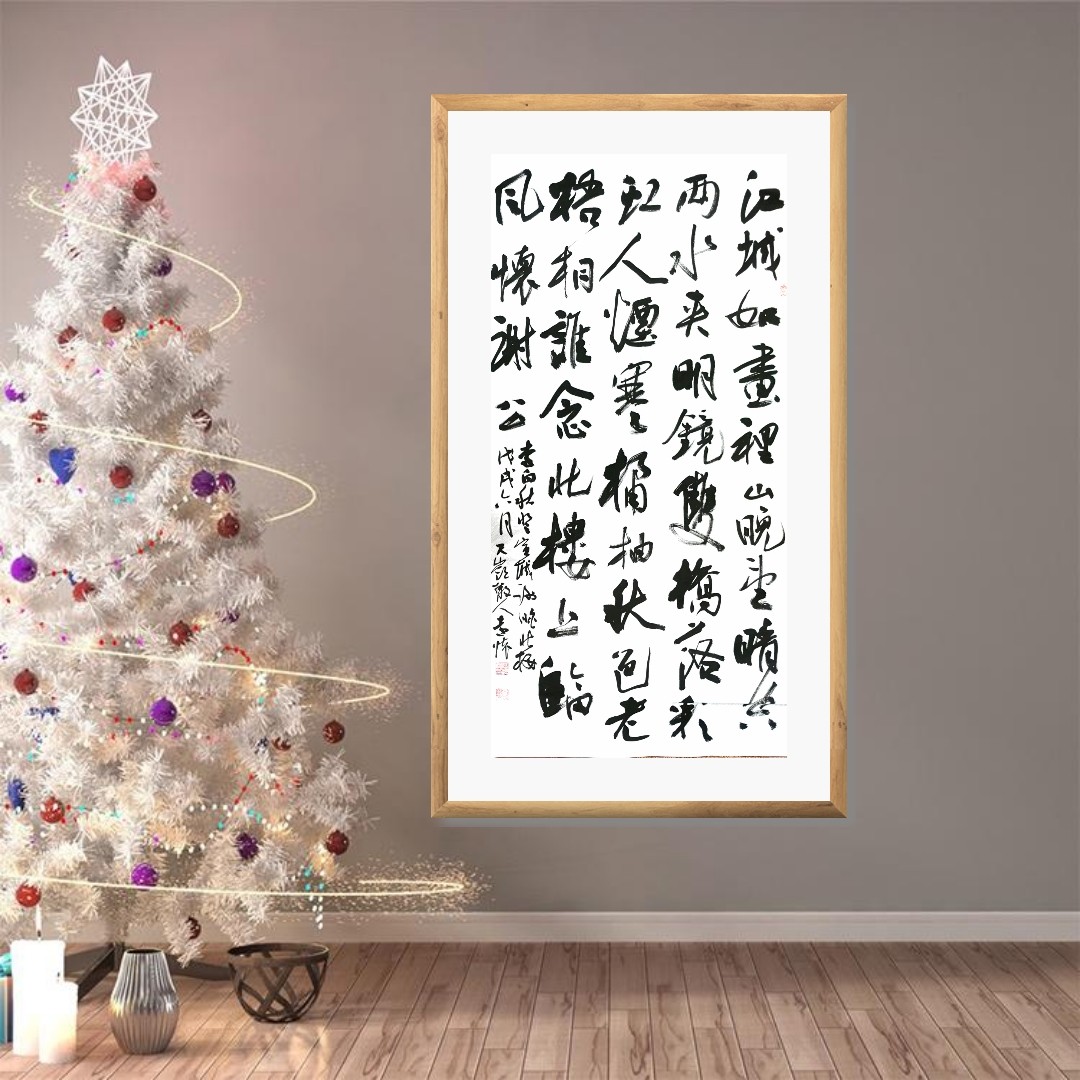 江城如畫裡山晚望晴空
兩水夾明鏡雙橋落彩
虹人煙寒橘柚秋色老
梧桐誰念北樓上臨
風懷謝公
李白秋登宣城謝朓北樓
戊戌六月散人